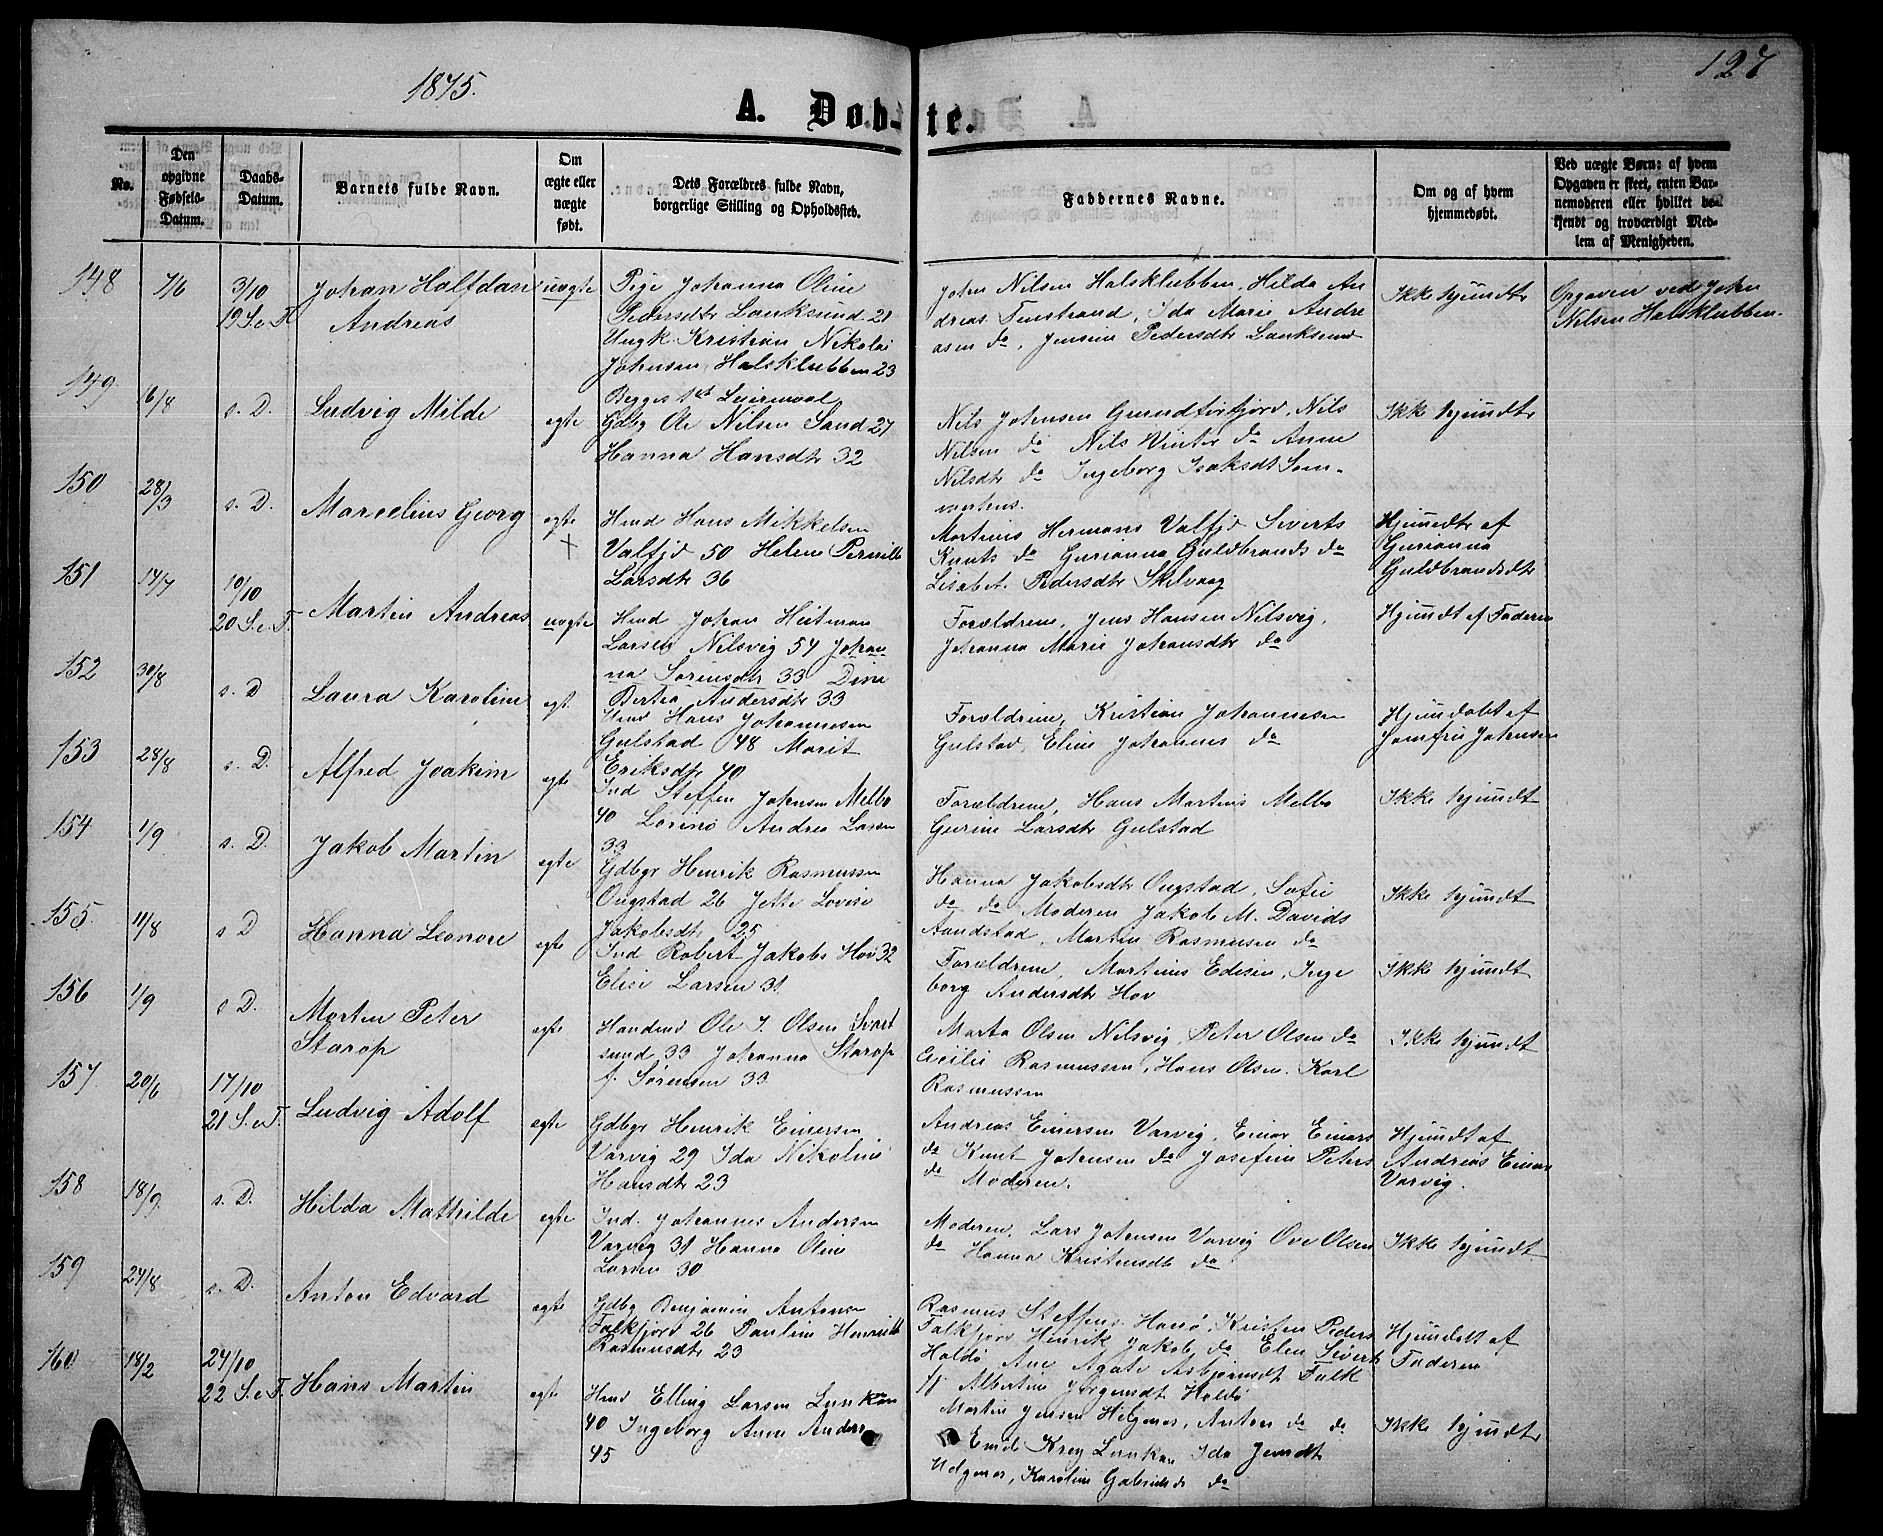 1875.
127
A. Døb-te.
No.
Den opgivne Fødsels-Datum.
Daabs-Datum.
Barnets fulde Navn.
Om ægte eller uægte født.
Dets Forældres fulde Navn, borgerlige Stilling og Opholdssted.
Faddernes Navne.
Om og af hvem hjemmedøbt.
Ved uægte Børn: af hvem Opgaven er skeet, enten Barnemoderen eller hvilket bekjendt og troværdigt Medlem af Menigheden.
148
7/6
3/10
19 S. e. T.
Johan Halfdan
Andreas
uægte
Pige Johanna Oline
Pedersdtr Lonksund 21
Ungk. Kristian Nikolai
Johnsen Halsklubben 23
Begges 1st Leiermaal
John Nilsen Halsklubben, Hilda An
dreas Finstrand, Ida Marie Andre
asen do, Jensine Pedersdtr Lonksund
Ikke hjemdt
Opgaven ved John
Nilsen Halsklubben.
149
6/8
s. D.
Ludvig Milde
egte
Gdbg Ole Nilsen Sand 27
Hanna Hansdtr 32
Nils Johnsen Grundførfjord, Nils
Nilsen do Nils Winter do Anne
Nilsdtr do Ingeborg Isaksdt Som-
Ikke hjemdt
150
28/3
s. D.
Marcelius Georg
egte
+
Hmd Hans Mikkelsen
Valfjd 50 Helene Pernille
Larsdtr 36
Martinus Hermans Valfjd Siverts
Knuts do Gurianna Guldbrands do
Lisabet Pedersdtr Skelvaag
Hjemdt af
Gurianna
Guldbrandsdtr
151
14/7
10/10
20 S. e. T.
Martin Andreas
uægte
Hmd Johan Heitman
Larsen Nilsvig 54 Johan-
na Sørensdtr 33
Forældrene, Jens Hansen Nilsvig,
Johanna Marie Johansdtr do
Hjemdt af Faderen
152
30/8
s. D
Laura Karoline
egt.
Dina
Bertea Andersdtr 33
Hmd Hans Johannesen
Gulstad 48 Marit
Eriksdtr 40
Forældrene, Kristian Johannesen
Gulstad, Eline Johannes do
Hjemdøbt af
Jomfru Johnsen
153
28/8
s. D.
Alfred Joakim
egte
Ind Steffen Johnsen Melbo
40 Lorine Andrea Larsen
33
Forældrene, Hans Martins Melbo
Gurine Larsdtr Gulstad
Ikke hjemdt
154
1/9
s. D.
Jakob Martin
egte
Gdbgr Henrik Rasmussen
Ongstad 26 Jette Lovise
Jakobsdtr 25
Hanna Jakobsdtr Ongstad, Sofie
do do Moderen Jakob M. Davids
Aandstad, Martin Rasmussen do
Ikke hjemdt
155.
11/8
s D
Hanna Leonore
egte
Ind Robert Jakobs Hov 32
Elise Larsen 31
Forældrene, Martinus Edisen, Inge
borg Andersdtr Hov
Ikke hjemdt
156
1/9
s D.
Morten Peter
Starop
egte
Handmd Ole J. Olsen Svart
sund 33 Johanna Starop
f. Sørensen 33
Marta Olsen Nilsvig, Peter Olsen do
Cecilie Rasmussen, Hans Olsen, Karl
Rasmussen
Ikke hjemdt
157
20/6
17/10
21 S. e. T.
Ludvig Adolf
egte
Gdbgr Henrik Einersen
Varvig 29 Ida Nikoline
Hansdtr 23
Andreas Einersen Varvig, Einar Einars
do Knut Johnsen do Josefine Peters
do Moderen.
Hjemdt af
Andreas Einers
Varvig.
158
18/9
s. D.
Hilda Mathilde
egte
Ind. Johannes Andersen
Varvig 31 Hanna Oline
Larsen 30
Moderen, Lars Johnsen Varvig Ove Olsen
do Hanna Kristensdt do
Ikke hjemdt
159
24/8
s. D.
Anton Edvard
egte
Gdbg Benjamin Antonsen
Falkfjord 26 Pauline Henriette
Rasmusdtr 23
Rasmus Steffens Hanø, Kristen Peders
Falkfjord Henrik Jakob do Elen Sivert
Holdø Ane Agate Asbjørnsdt Falk
fj Albertine Jørgensdt Holdø
Hjemdøbt af
Faderen
160
18/2
24/10
22 S. e. T.
Hans Martin
egte
Hmd Elling Larsen Lunkan
40 Ingeborg Anne Anders
45
Martin Jensen Helgenes, Anton do do
Emil Krey Lunkan Ida Jensdt
Helgenes, Karoline Gabrielsds do
Ikke hjemdt